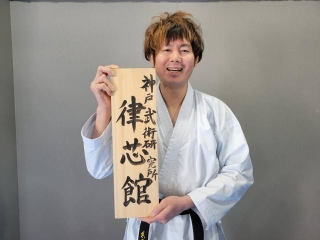 神戸武術研究所
律芯館